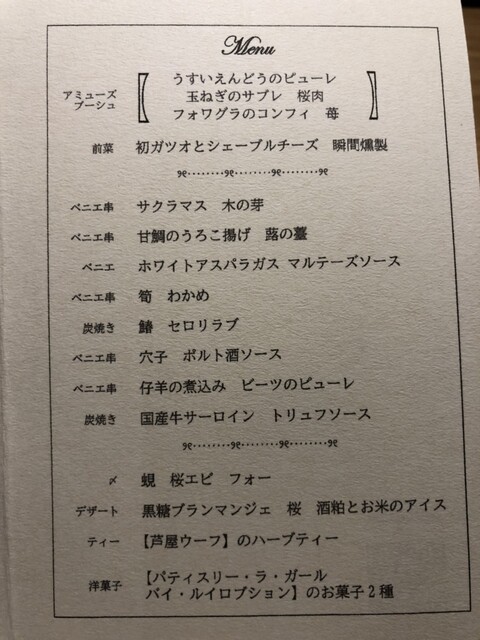 Menu
アミューズ
ブーシュ
うすいえんどうのピューレ
玉ねぎのサブレ 桜肉
フォワグラのコンフィ 苺
前菜 初ガツオとシェーブルチーズ 瞬間燻製
ベニエ串 サクラマス 木の芽
ベニエ串 甘鯛のうろこ揚げ 蕗の薹
ベニエ ホワイトアスパラガス マルテーズソース
ベニエ串 筍 わかめ
炭焼き 鰆 セロリラブ
ベニエ串 穴子 ポルト酒ソース
ベニエ串 仔羊の煮込み ビーツのピューレ
炭焼き 国産牛サーロイン トリュフソース
〆 蜆 桜エビ フォー
デザート 黒糖ブランマンジェ 桜 酒粕とお米のアイス
ティー 【芦屋ウーフ】のハーブティー
洋菓子 【パティスリー・ラ・ガール
バイ・ルイロブション】のお菓子2種